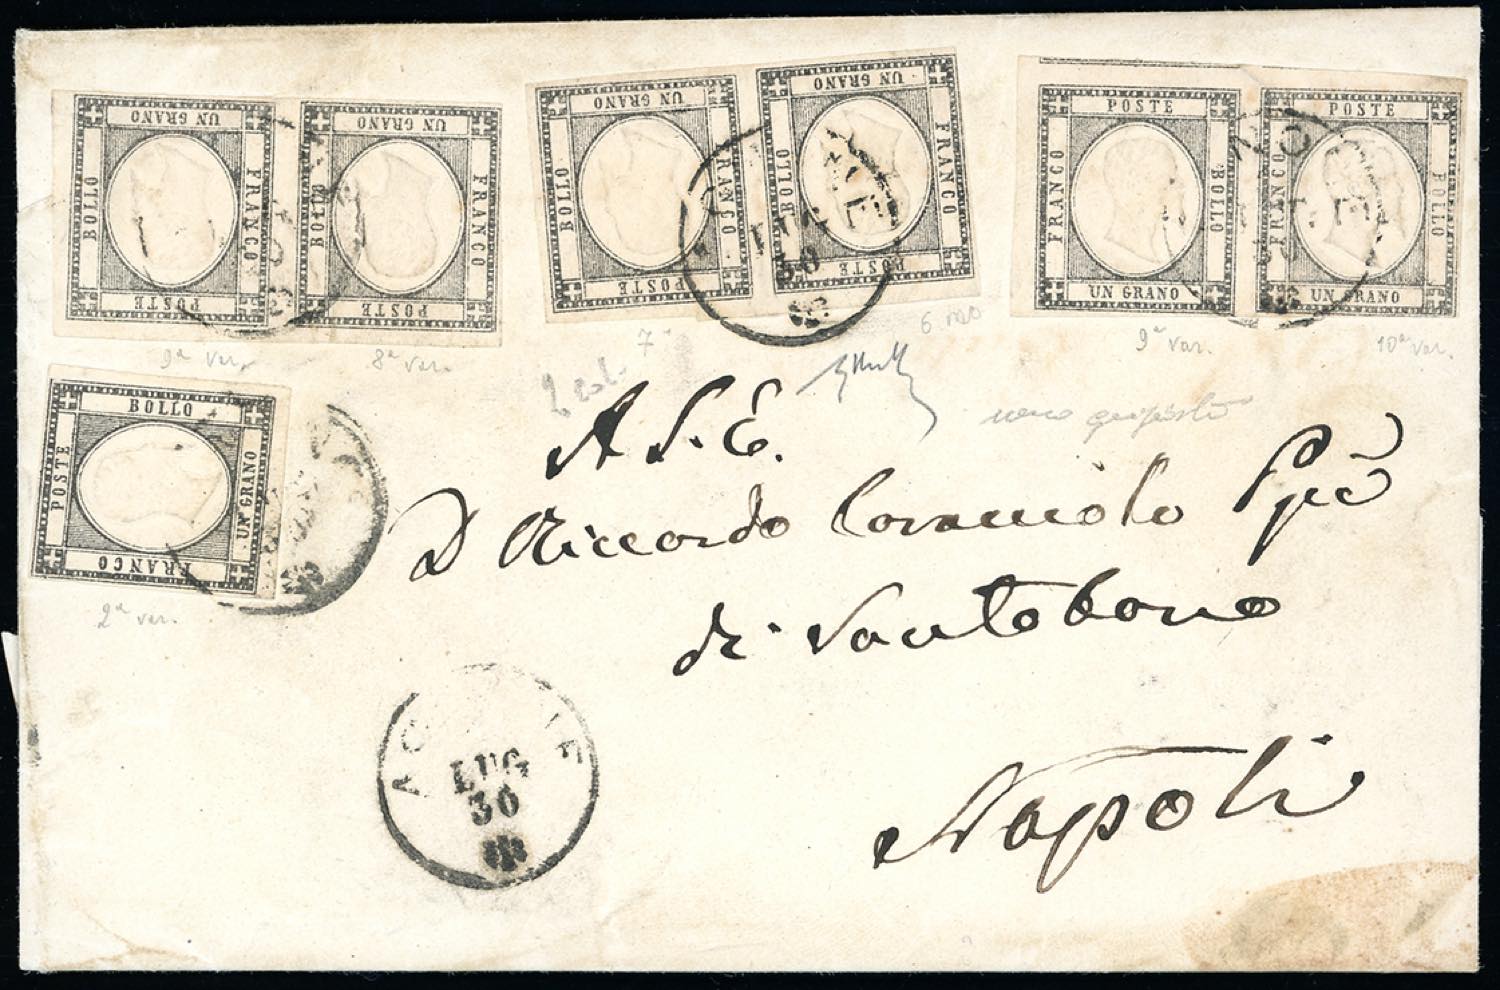 UN GRANO FRANCO POSTE BOLLO
UN GRANO FRANCO POSTE BOLLO
UN GRANO FRANCO POSTE BOLLO
UN GRANO FRANCO POSTE BOLLO
POSTE BOLLO UN GRANO FRANCO
POSTE BOLLO UN GRANO FRANCO
9a var.
8a var.
7a
9a var.
10a var.
BOLLO UN GRANO FRANCO POSTE
2a var.
LUG
30
A S. E.
D Riccardo Caracciolo
di Santobono
Napoli
LUG
30